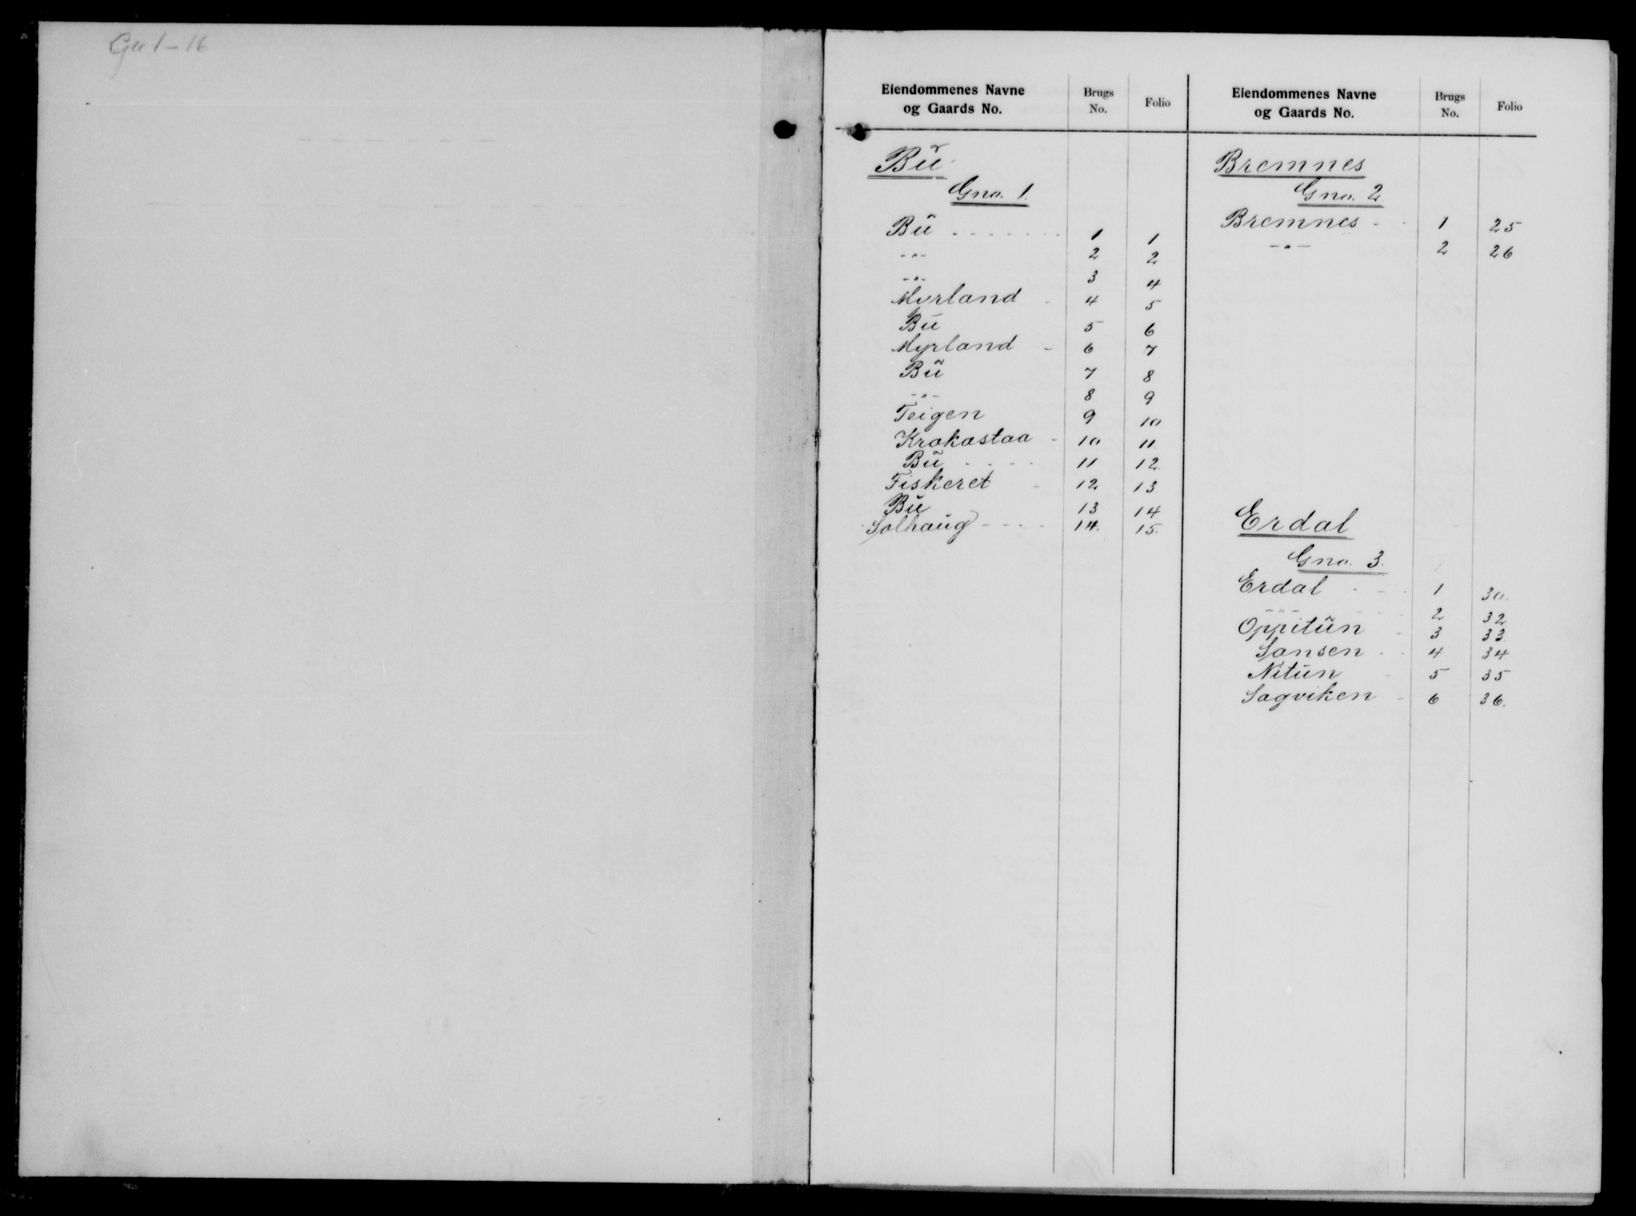 Gn 1-16
Eiendommenes Navne og Gaards No. Brugs No. Folio
Bu
Gno. 1
Bu 1 1
-"- 2 2
-"- 3 4
Myrland 4 5
Bu 5 6
Myrland 6 7
Bu 7 8
-"- 8 9
Teigen 9 10
Krakastaa 10 11
Bu 11 12
Fiskeret 12 13
Bu 13 14
Solhaug 14 15
Eiendommenes Navne og Gaards No. Brugs No. Folio
Bremnes
Gno. 2
Bremnes 1 25
-"- 2 26
Erdal
Gno. 3
Erdal 1 30
-"- 2 32
Oppitun 3 33
Sansen 4 34
Nitun 5 35
Sagviken 6 36